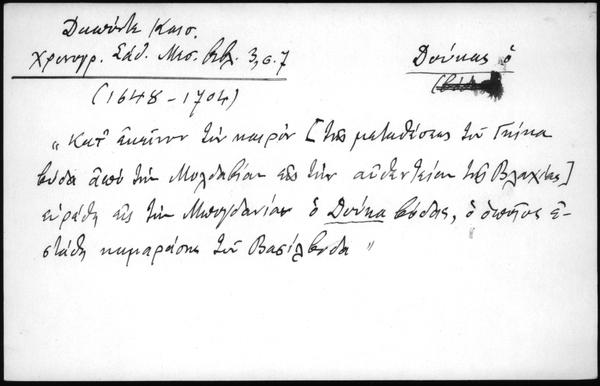 Δαπόντε Καισ.
Χρονογρ. Σάθ. Μεσ. Βιβλ. 3, σ. 7
Δούκας ὁ
(1648-1704)
"Κατ' ἐκεῖνον τὸν καιρὸν [τῆς μεταθέσεως τοῦ Γκίκα
βόδα ἀπὸ τὴν Μολδαβίαν εἰς τὴν αὐθεντείαν τῆς Βλαχίας]
εὑρέθη εἰς τὴν Μπογδανίαν ὁ Δούκα βόδας, ὁ ὁποῖος ἐ-
στάθη καμαράσης τοῦ Βασίλ βόδα"